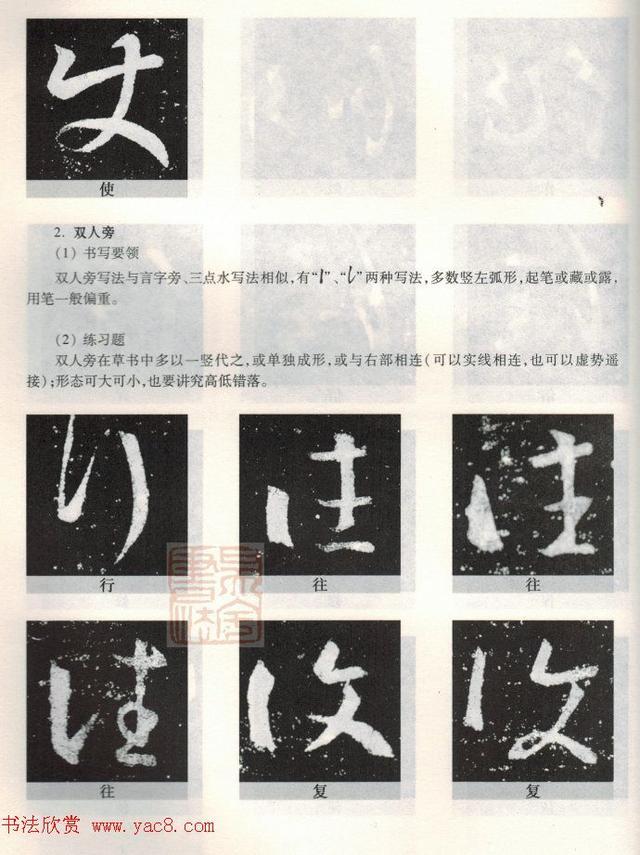 使
2. 双人旁
(1) 书写要领
双人旁写法与言字旁、三点水写法相似,有“”、“”两种写法,多数竖左弧形,起笔或藏或露,
用笔一般偏重。
(2) 练习题
双人旁在草书中多以一竖代之,或单独成形,或与右部相连(可以实线相连,也可以虚势遥
接);形态可大可小,也要讲究高低错落。
行 往 往
往 复 复
书法欣赏 www.yac8.com